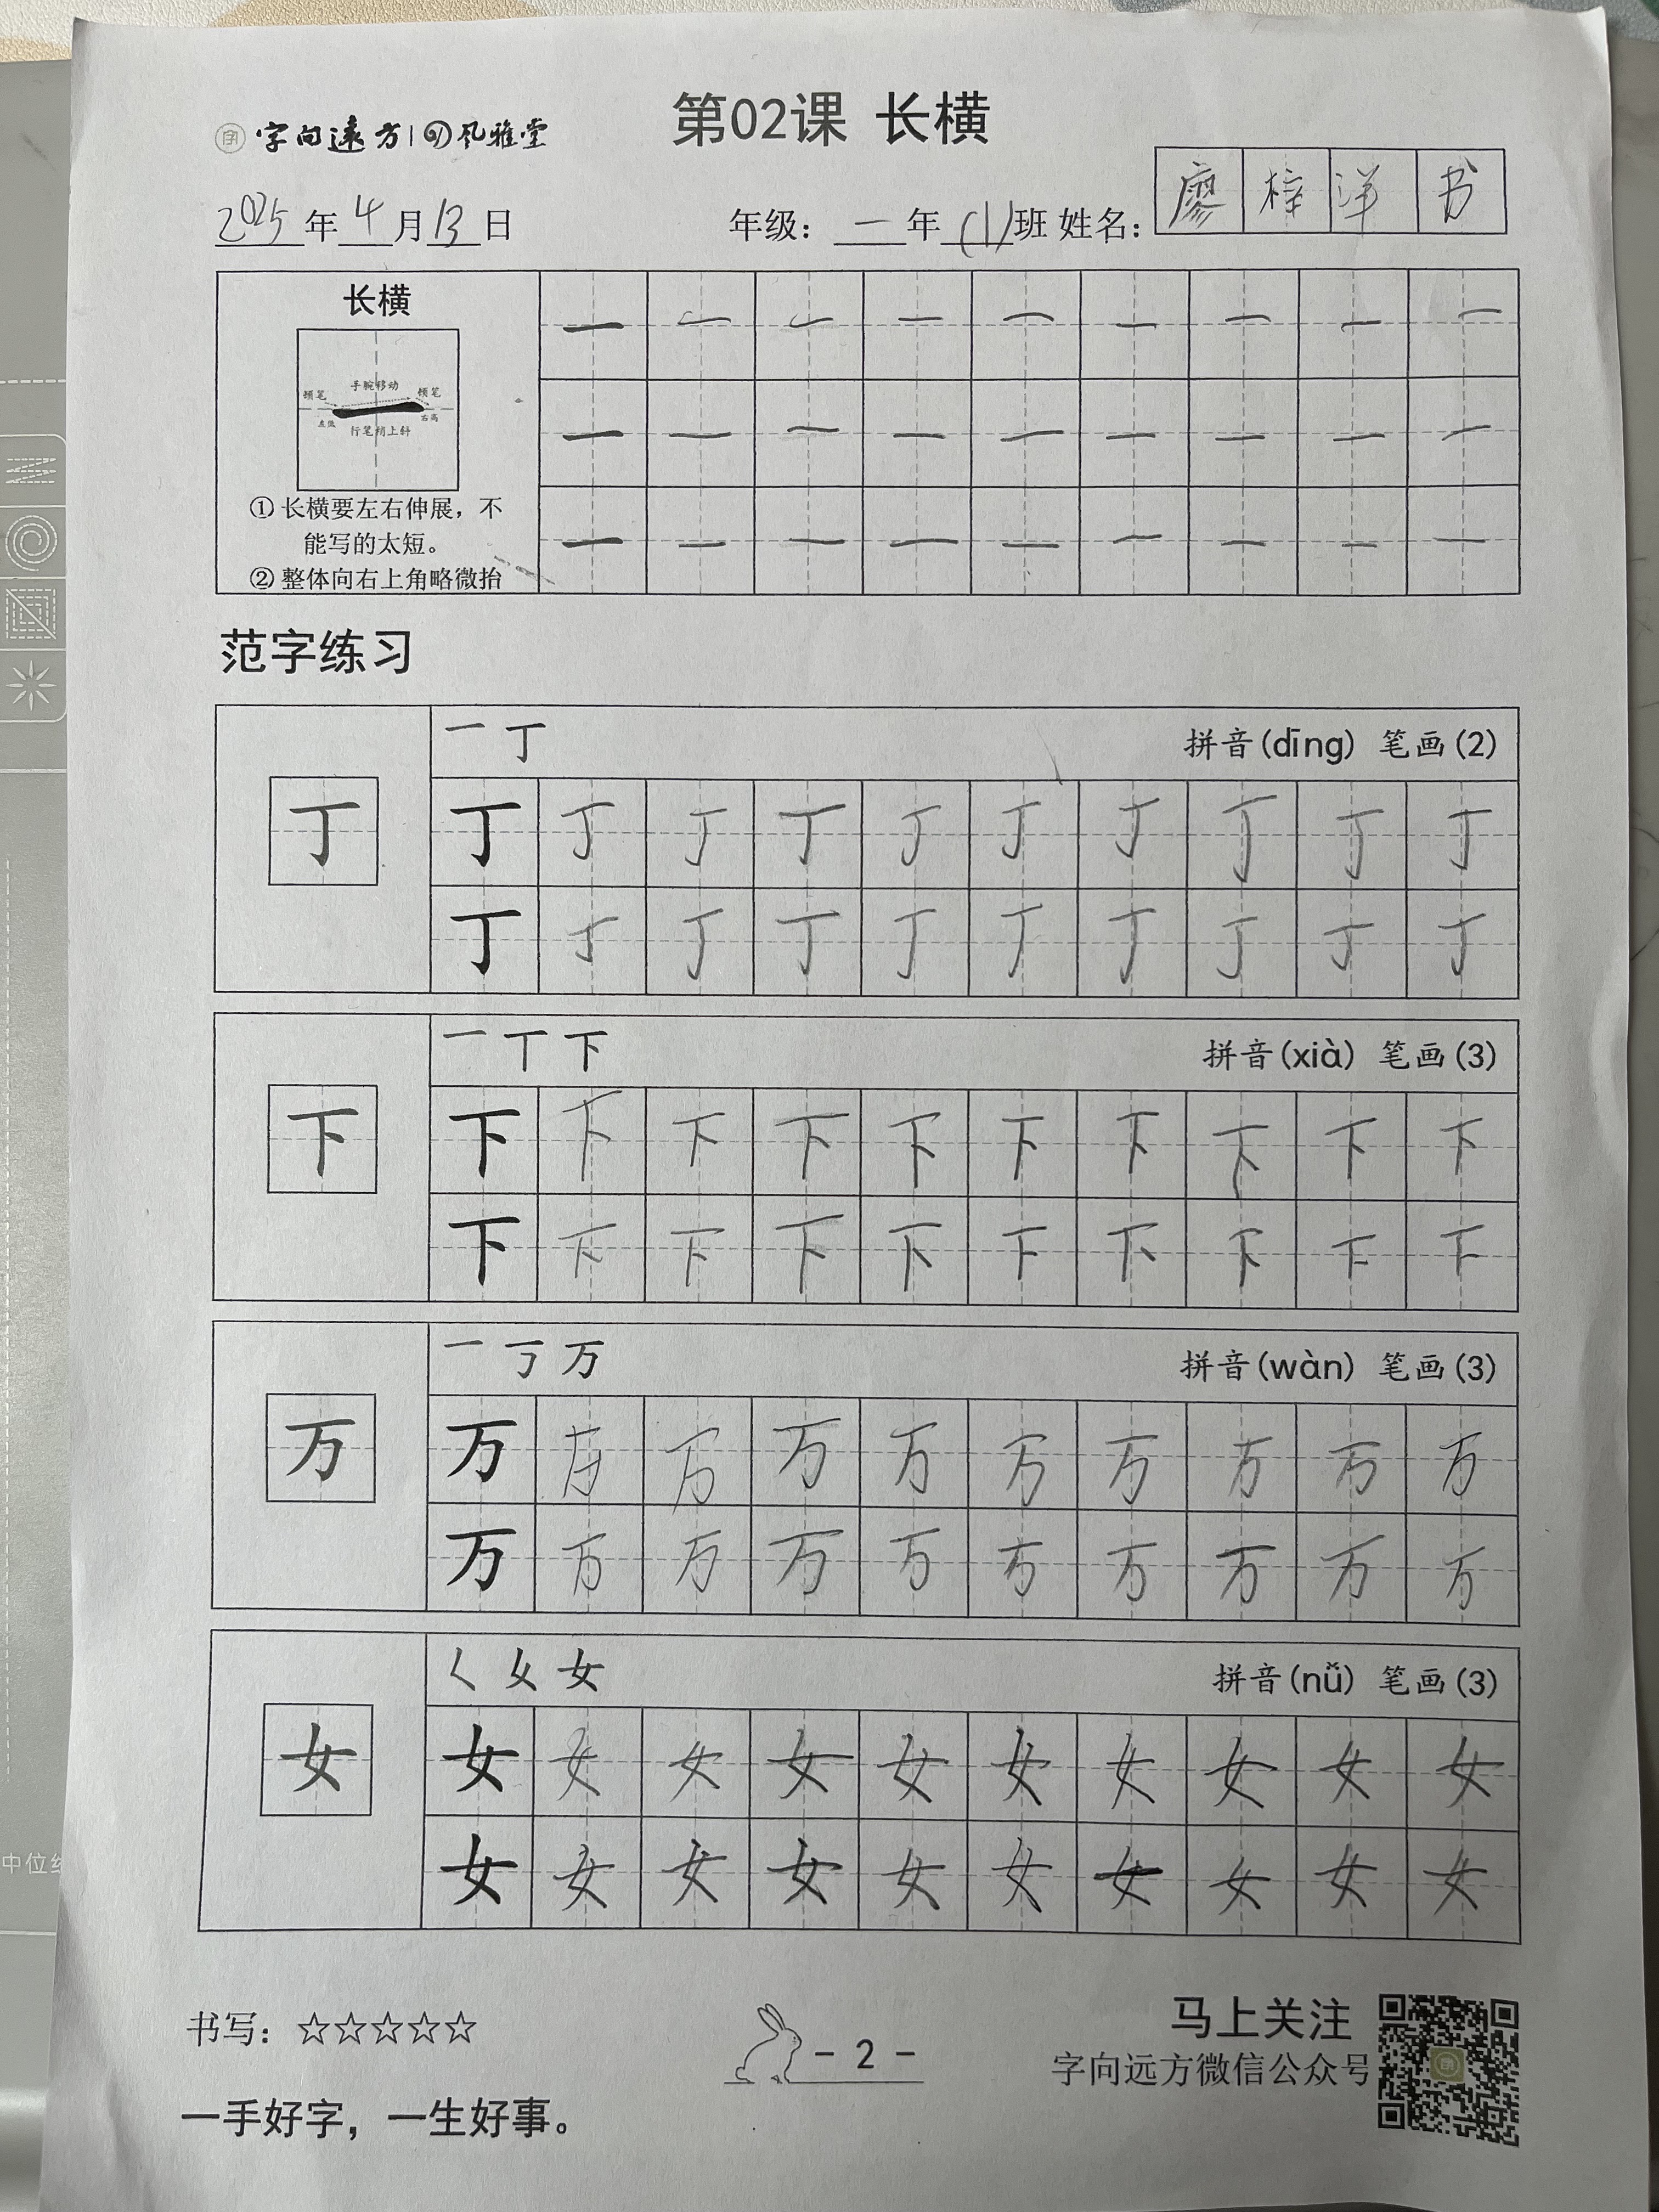 第02课 长横
字向远方 风雅堂
2025年4月13日 年级：一年(1)班 姓名：廖梓洋书
长横
顿笔 手腕移动 顿笔
左低 行笔稍上斜 右高
① 长横要左右伸展，不
能写的太短。
② 整体向右上角略微抬
一 一 一 一 一 一 一 一 一
一 一 一 一 一 一 一 一 一
一 一 一 一 一 一 一 一 一
范字练习
一 丁 拼音(dīng) 笔画(2)
丁
丁 丁 丁 丁 丁 丁 丁 丁 丁 丁
丁 丁 丁 丁 丁 丁 丁 丁 丁 丁
一 丅 下 拼音(xià) 笔画(3)
下
下 下 下 下 下 下 下 下 下 下
下 下 下 下 下 下 下 下 下 下
一 丂 万 拼音(wàn) 笔画(3)
万
万 万 万 万 万 万 万 万 万 万
万 万 万 万 万 万 万 万 万 万
𡿨 女 女 拼音(nǚ) 笔画(3)
女
女 女 女 女 女 女 女 女 女 女
女 女 女 女 女 女 女 女 女 女
书写：☆☆☆☆☆
- 2 -
马上关注
字向远方微信公众号
一手好字，一生好事。
中位